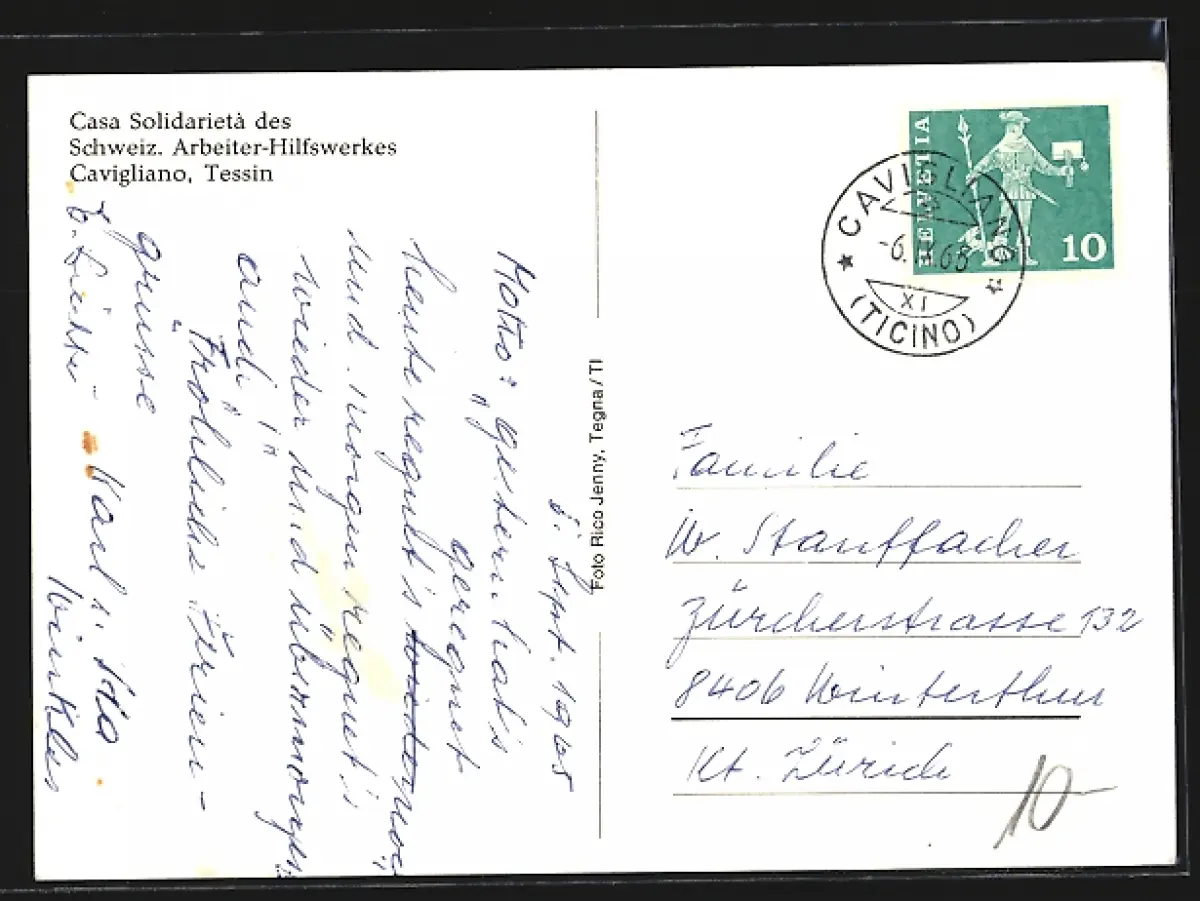 Casa Solidarietà des
Schweiz. Arbeiter-Hilfswerkes
Cavigliano, Tessin
HELVETIA
10
CAVIGLIANO
-6. 65
XI
(TICINO)
Foto Rico Jenny, Tegna/TI
5. Sept. 1965
Motto: "gestern hat's
geregnet
heute regnet's
und morgen regnet's
wieder und übermorgen
auch"
"Fröhliche Ferien-
grüsse
Karl u.
Winkler
Familie
W. Stauffacher
Zürcherstrasse 132
8406 Winterthur
Kt. Zürich
10